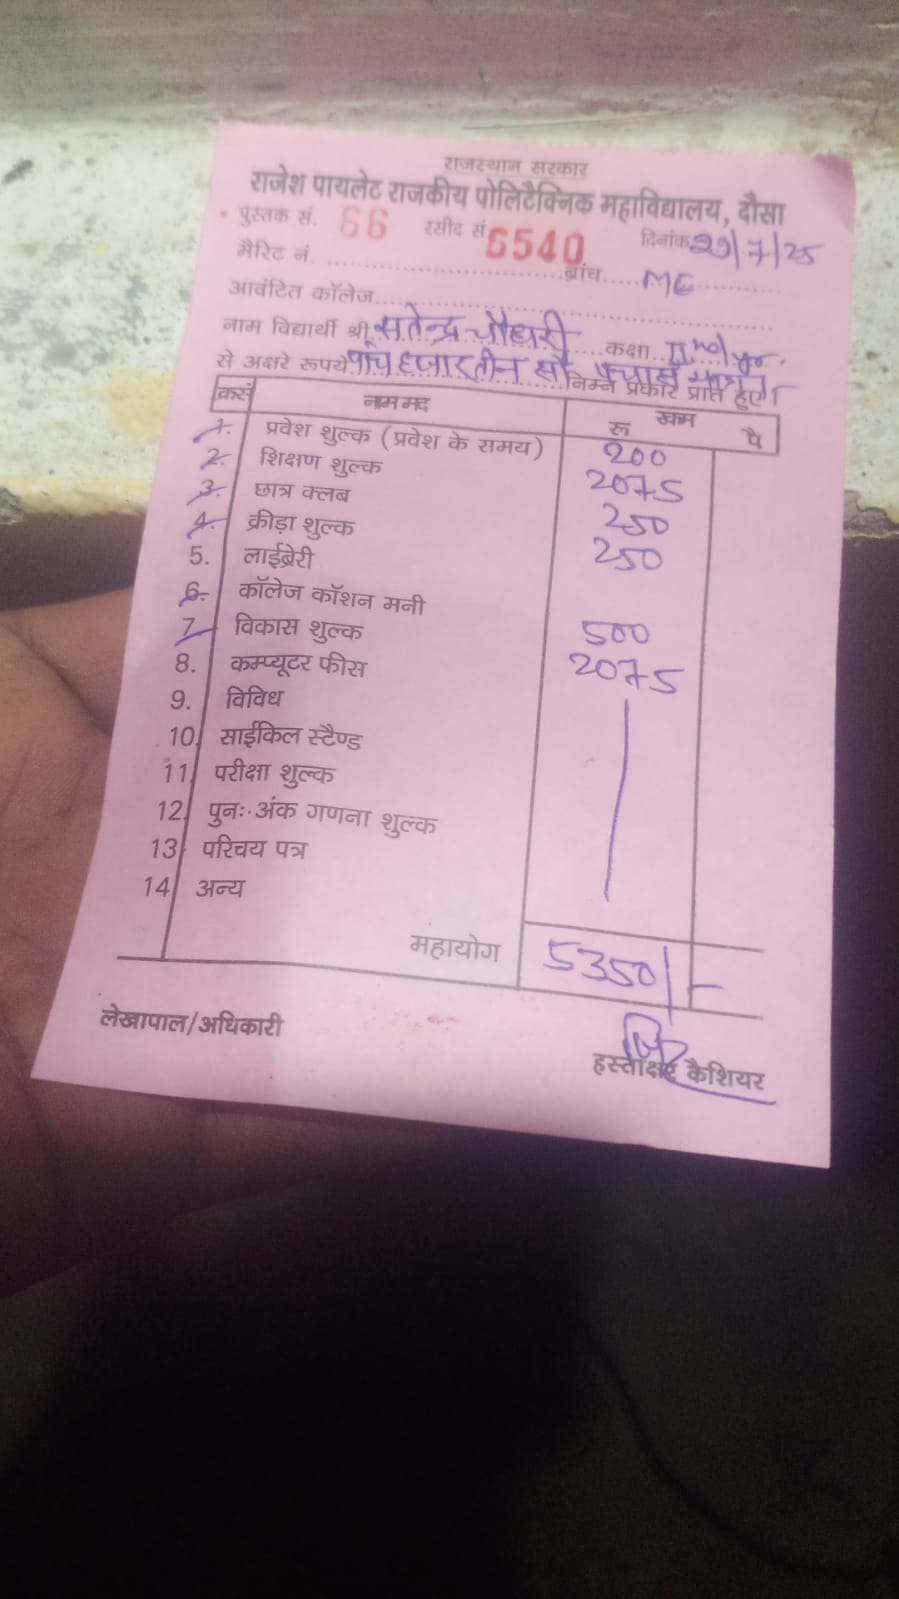 राजस्थान सरकार
राजेश पायलेट राजकीय पोलिटैक्निक महाविद्यालय, दौसा
पुस्तक सं. 66 रसीद सं 6540 दिनांक 29/7/25
मैरिट नं. ........ ब्रांच..... ME ........
आवंटित कॉलेज........
नाम विद्यार्थी श्री सतेन्द्र चौधरी कक्षा.. IInd yr.
से अक्षरे रूपये पांच हजार तीन सौ पचास मात्र निम्न प्रकार प्राप्त हुए।
क्रसं नाम मद रकम
रू पै
1. प्रवेश शुल्क (प्रवेश के समय) 200
2. शिक्षण शुल्क 2075
3. छात्र क्लब 250
4. क्रीड़ा शुल्क 250
5. लाईब्रेरी
6. कॉलेज कॉशन मनी 500
7. विकास शुल्क 2075
8. कम्प्यूटर फीस
9. विविध
10. साईकिल स्टैण्ड
11. परीक्षा शुल्क
12. पुनः अंक गणना शुल्क
13. परिचय पत्र
14 अन्य
महायोग 5350/-
लेखापाल/अधिकारी हस्ताक्षर कैशियर